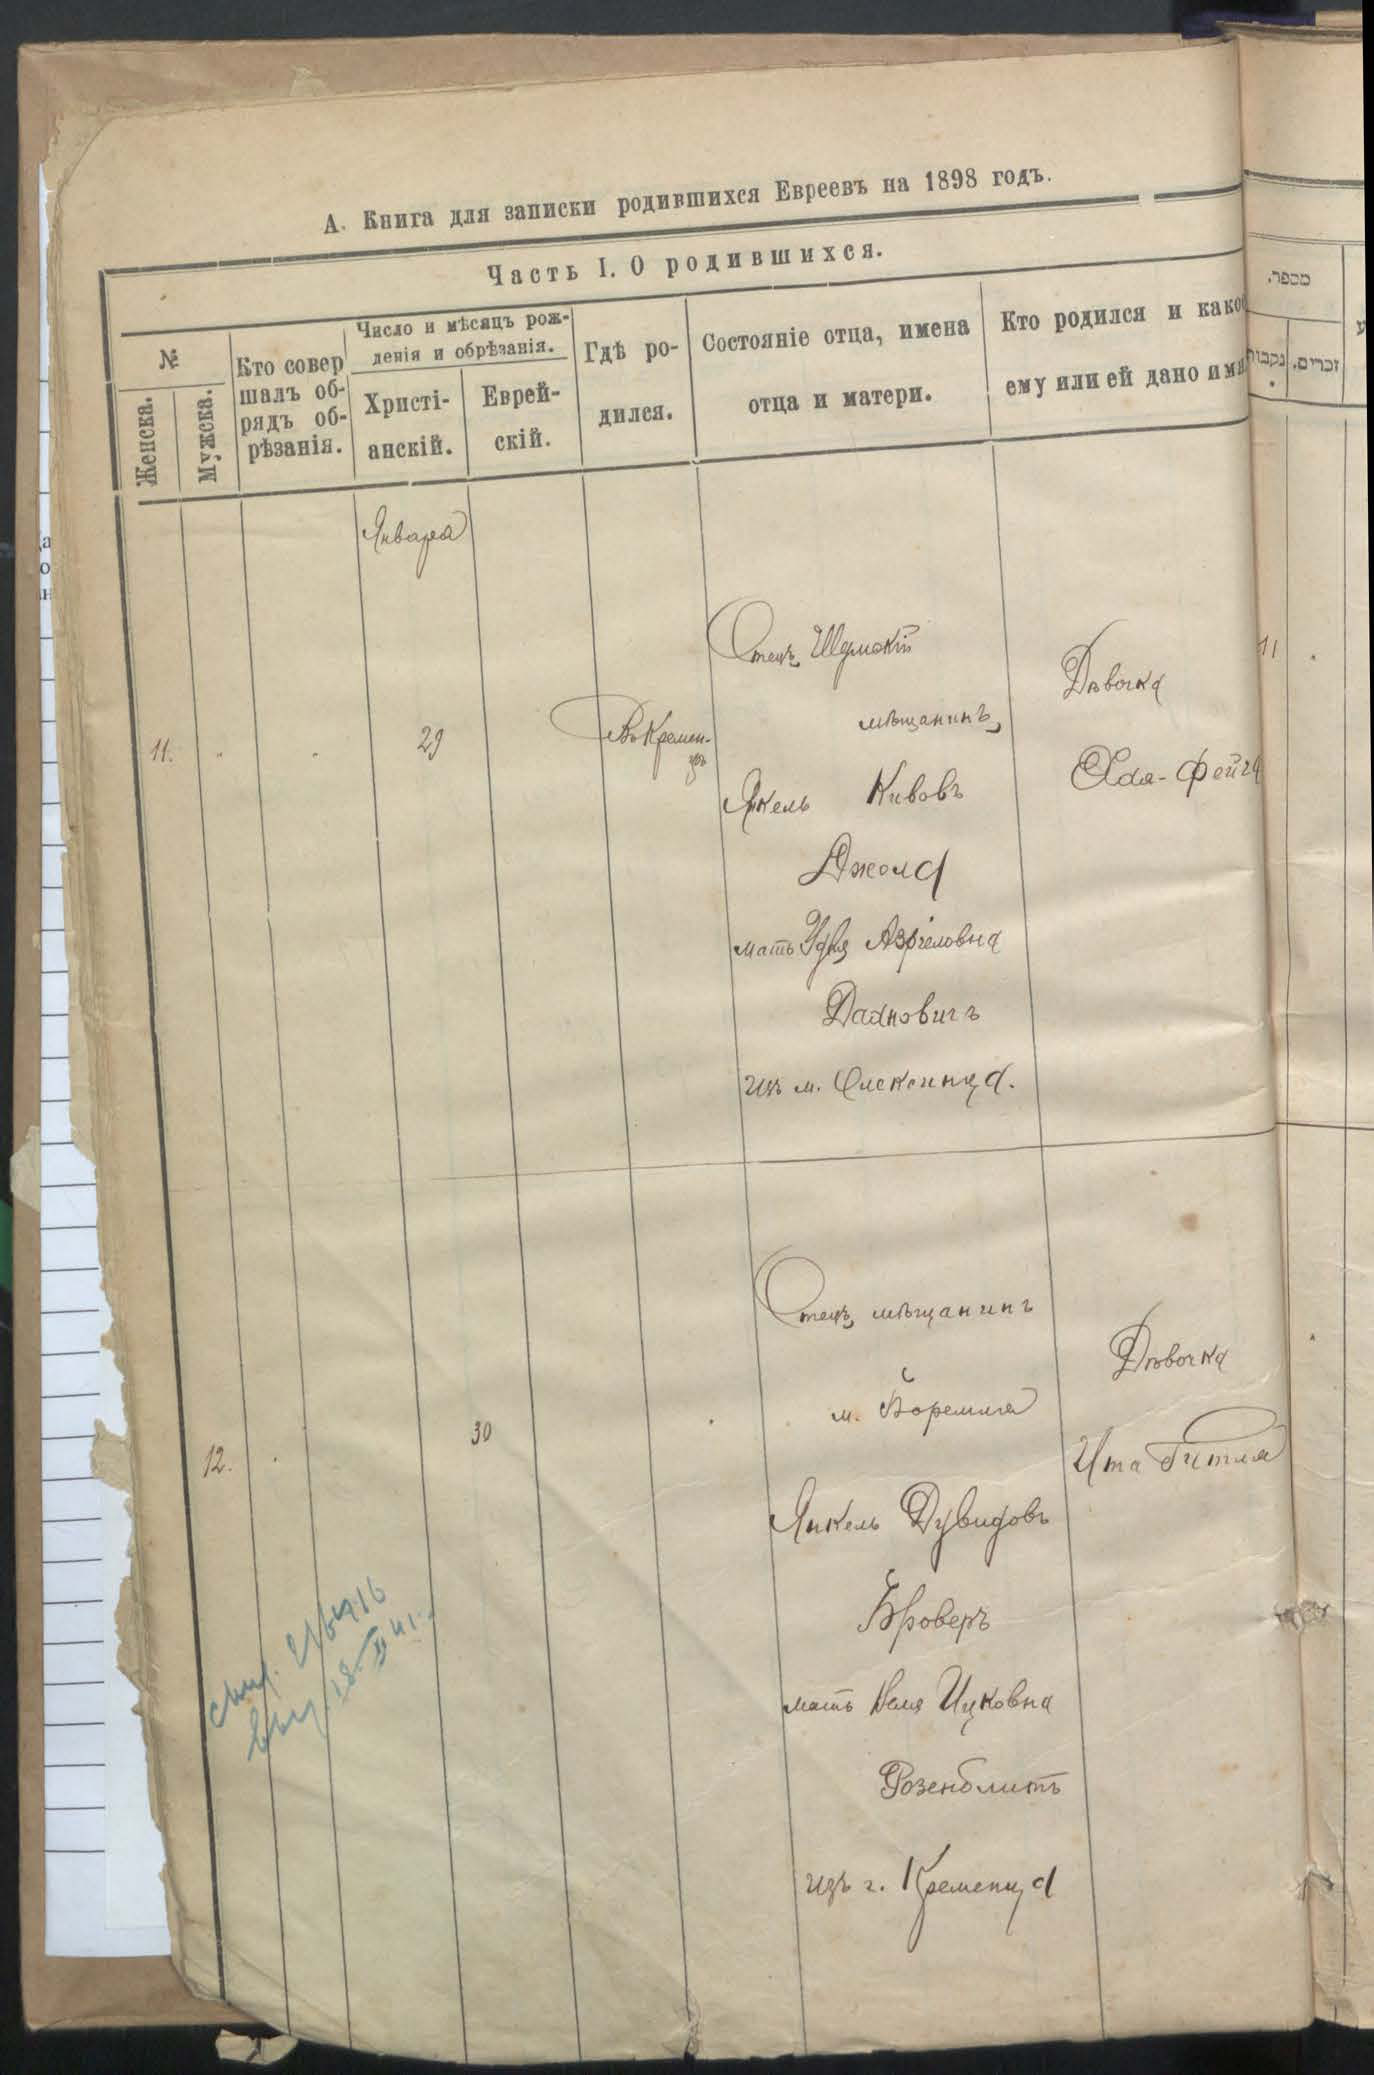 А. Книга для записки родившихся Евреевъ на 1898 годъ.
Часть I. О родившихся.
№
Женска.
Мужска.
Кто совер
шалъ об-
рядъ об-
рѣзанія.
Число и мѣсяцъ рож-
денія и обрѣзанія.
Христі-
анскій.
Еврей-
скій.
Гдѣ ро-
дился.
Состояніе отца, имена
отца и матери.
Кто родился и какое
ему или ей дано имя
מספר.
נקבות
זכרים.
Января
11.
29
Въ Кремен-
цѣ
Отецъ Шумскій
мѣщанинъ
Янкель Кивовъ
мать Удля Азріеловна
Дахновичъ
изъ м. Олексинца.
Дѣвочка
Хая-Фейга
11
12.
30
Отецъ мѣщанинъ
м. Боремля
Янкель Дувидовъ
Броверъ
мать Веля Ицковна
Розенблитъ
изъ г. Кременца
Дѣвочка
Ита Гитля
18 II 41